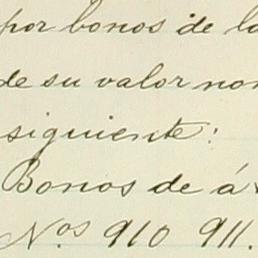 por bonos de la
de su valor nom
siguiente:
Bonos de á
Nos 910 911.